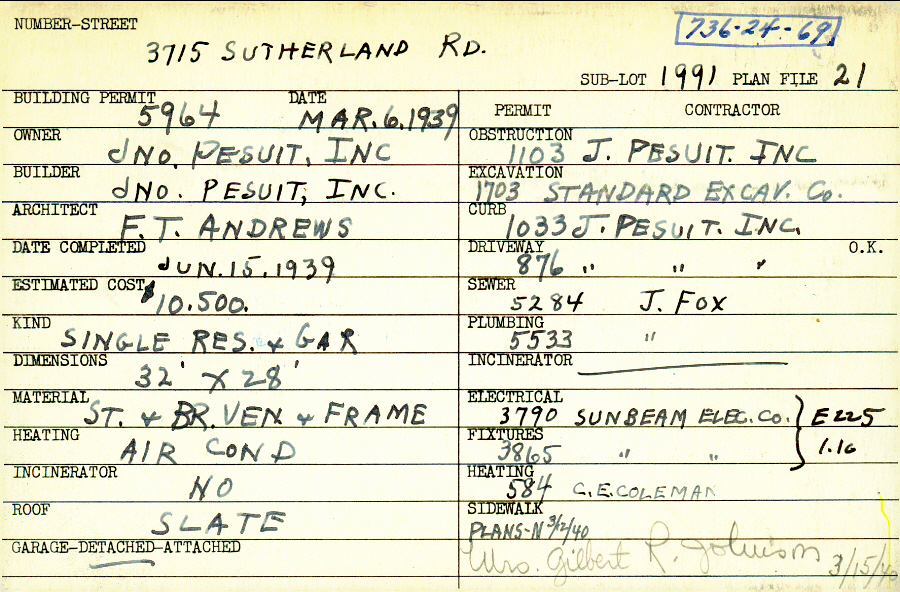 NUMBER-STREET
3715 SUTHERLAND RD.
736-24-69
SUB-LOT 1991 PLAN FILE 21
BUILDING PERMIT 5964 DATE MAR. 6. 1939
OWNER JNO. PESUIT, INC
BUILDER JNO. PESUIT, INC.
ARCHITECT F. T. ANDREWS
DATE COMPLETED JUN. 15, 1939
ESTIMATED COST $10.500.
KIND SINGLE RES. & GAR
DIMENSIONS 32' X 28'
MATERIAL ST. & BR. VEN. & FRAME
HEATING AIR COND
INCINERATOR NO
ROOF SLATE
GARAGE-DETACHED-ATTACHED
PERMIT CONTRACTOR
OBSTRUCTION 1103 J. PESUIT. INC
EXCAVATION 1703 STANDARD EXCAV. Co.
CURB 1033 J. PESUIT. INC.
DRIVEWAY 876 " " " O.K.
SEWER 5284 J. FOX
PLUMBING 5533 "
INCINERATOR
ELECTRICAL 3790 SUNBEAM ELEC. Co. E225
FIXTURES 3865 " " 1.16
HEATING 584 C. E. COLEMAN
SIDEWALK
PLANS-N 3/12/40
Mrs. Gilbert R. Johnson 3/15/40